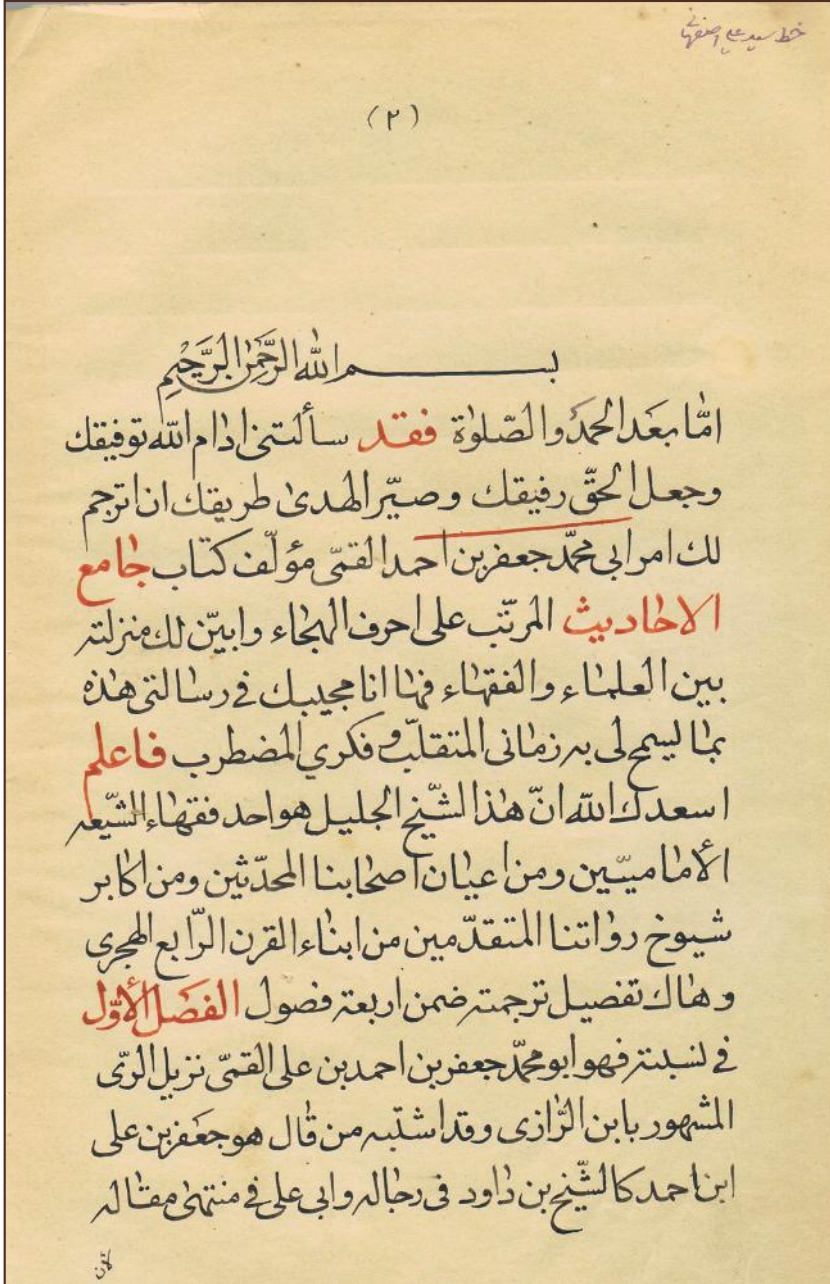 خط سید علی اصفهانی
(٢)
بسم الله الرّحمٰن الرّحيم
امّا بعد الحمد والصّلوٰة فقد سألتنى ادام الله توفيقك
وجعل الحقّ رفيقك وصيّر الهدىٰ طريقك ان اترجم
لك امر ابى محمّد جعفر بن احمد القمّى مؤلّف كتاب جامع
الاحاديث المرتّب على احرف الهجاء وابيّن لك منزلته
بين العلماء والفقهاء فها انا مجيبك فى رسالتى هذه
بما ليسمح لى به زمانى المتقلّب وفكري المضطرب فاعلم
اسعدك الله انّ هذا الشّيخ الجليل هو احد فقهاء الشّيعه
الأماميّين ومن اعيان اصحابنا المحدّثين ومن اكابر
شيوخ رواتنا المتقدّمين من ابناء القرن الرّابع الهجرى
وهاك تفصيل ترجمته ضمن اربعة فصول الفصل الأوّل
فى نسبته فهو ابو محمّد جعفر بن احمد بن على القمّى نزيل الرّى
المشهور بابن الرّازى وقد اشتبه من قال هو جعفر بن على
ابن احمد كالشّيخ بن داود فى رجاله وابى على فى منتهىٰ مقاله
لأن